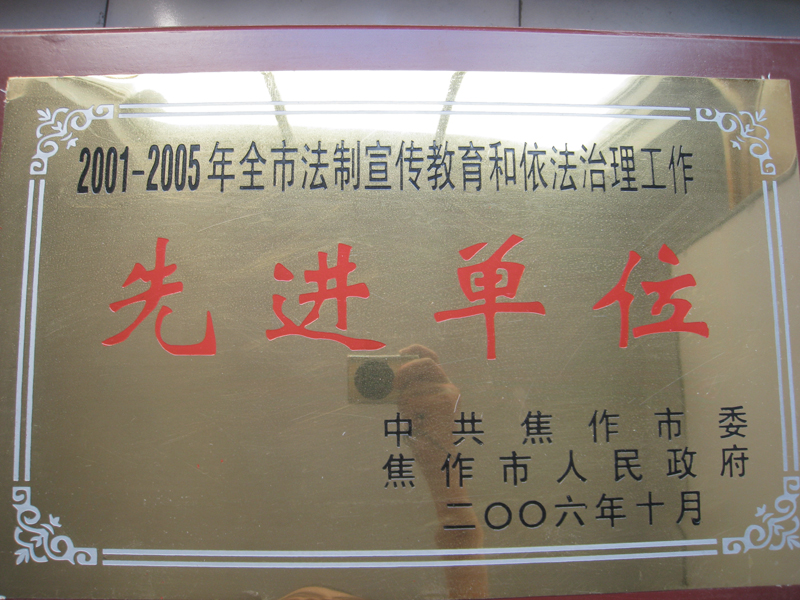 2001-2005年全市法制宣传教育和依法治理工作
先进单位
中共焦作市委
焦作市人民政府
二〇〇六年十月